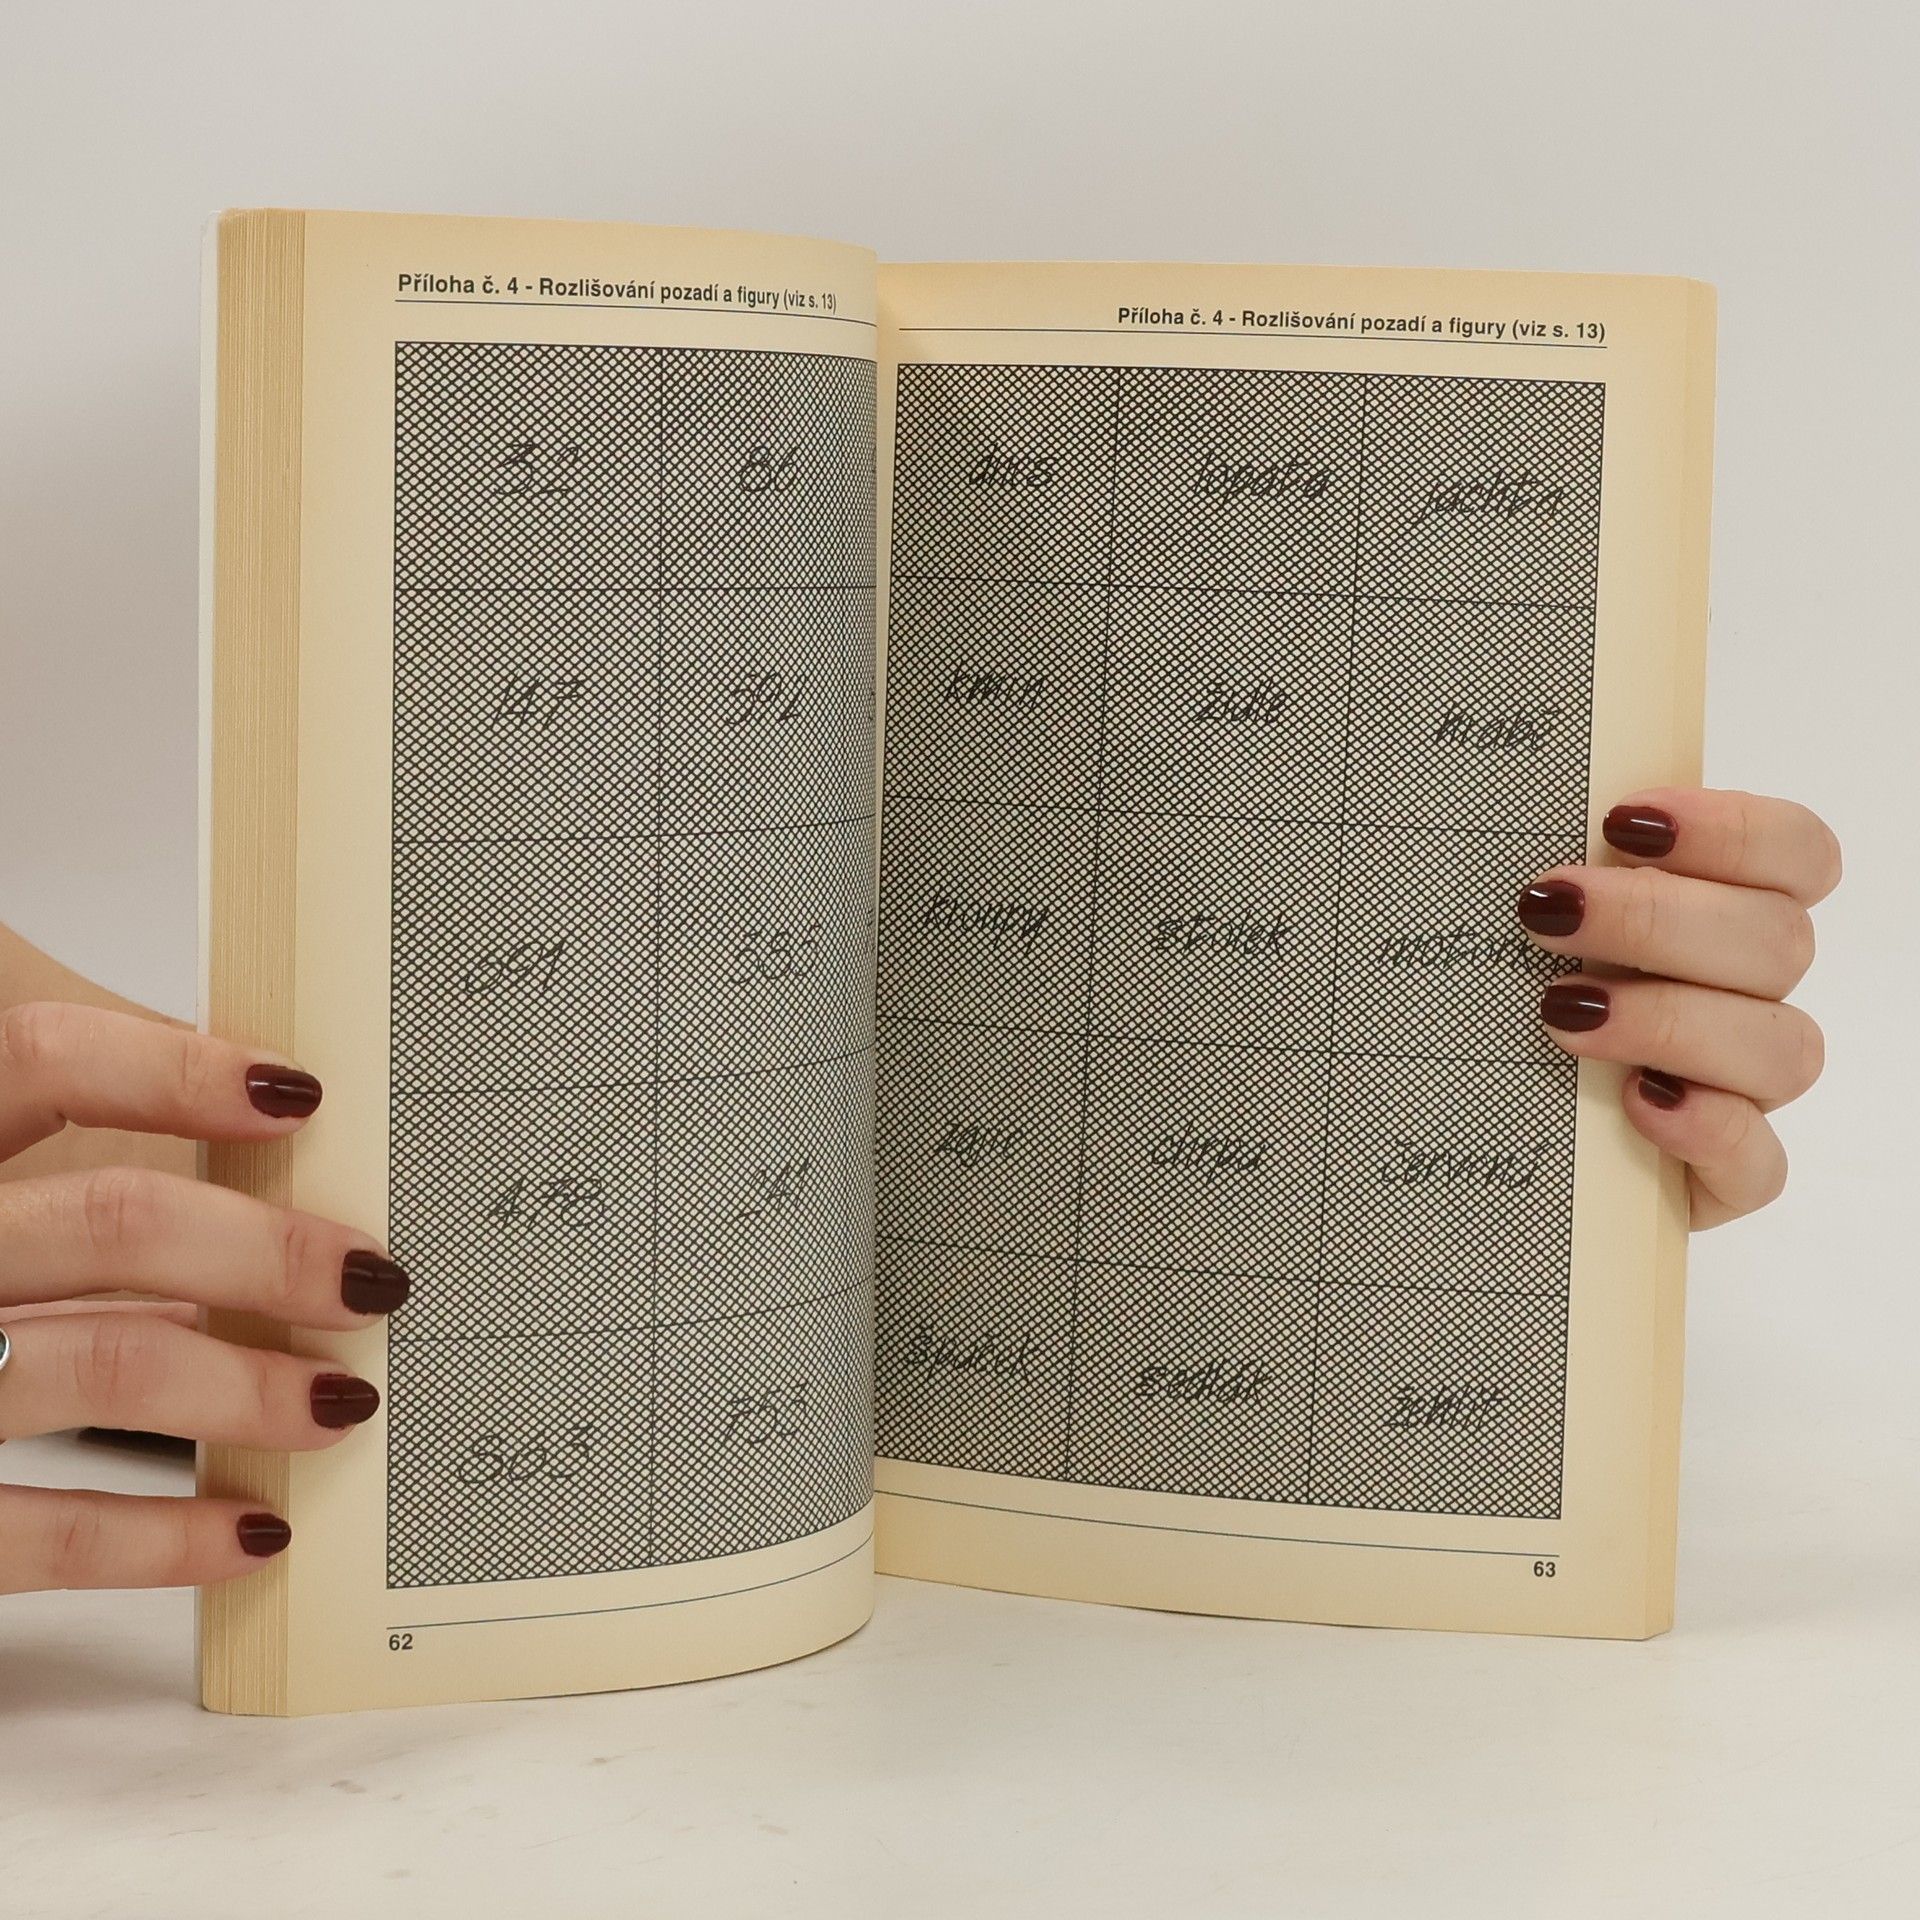 Příloha č. 4 - Rozlišování pozadí a figury (viz s. 13)
32 86
147 591
691
473 241
803 753
62
Příloha č. 4 - Rozlišování pozadí a figury (viz s. 13)
dnes lopata jachta
kmín židle hrabě
kroupy stolek motorka
zajíc chrpa červená
špaček sedlák
63